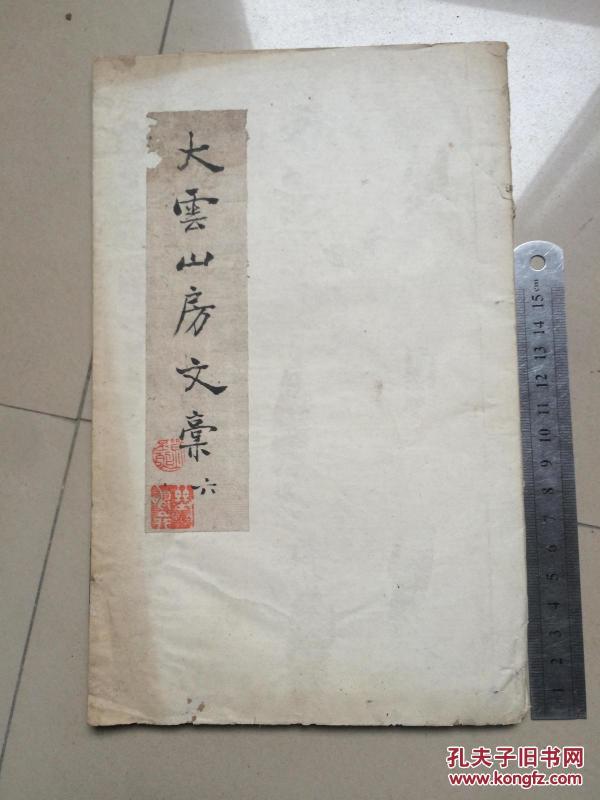 大雲山房文稾
六
15 cm
14
13
12
11
10
9
8
7
6
5
4
3
2
1
孔夫子旧书网
www.kongfz.com